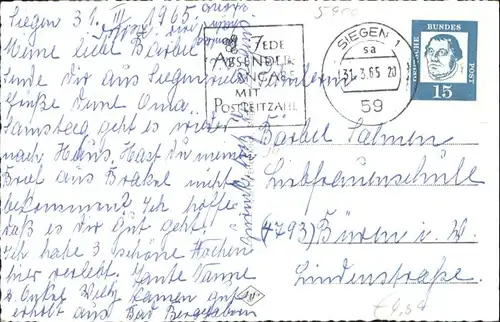 Siegen 31. III. 1965.
Meine liebe Bärbel
Sende dir aus Siegen
Grüße Deine Oma.
Samstag geht es wieder
nach Haus, Hast Du meinen
Brief aus Brakel nicht
bekommen? Ich hoffe
daß es dir gut geht.
Ich habe 3 schöne Wochen
hier verlebt. Tante Vanne
u. Onkel Willy kamen gut
erholt aus Bad Bergzabern
JEDE
ABSENDER-
ANGABE
MIT
POSTLEITZAHL
SIEGEN 1
sa
31.3.65 20
59
DEUTSCHE
BUNDES
POST
15
Bärbel
Liebfrauenschule
(4793) Büren i. W.
Lindenstraße.